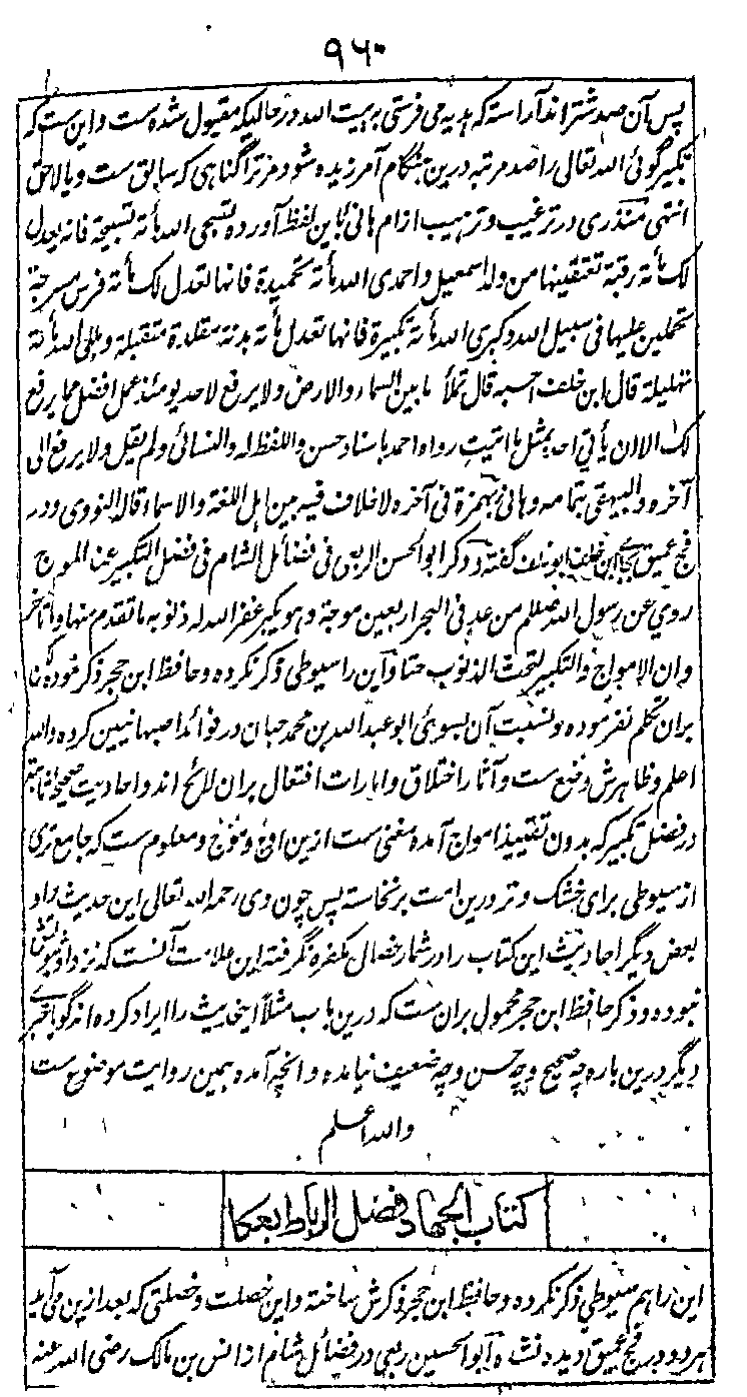 ۹۶۰
پس آن صد شتر اند آراسته که هدیه می فرستی به بیت الله در حالیکه مقبول شده ست و این ست که
تکبیر گوئی الله تعالی را صد مرتبه درین هنگام آمرزیده شود مر ترا گناهی که سابق ست و یا لاحق
انتهی منذری در ترغیب و ترهیب از ام هانی باین لفظ آورده تسبحی الله مأة تسبیحة فانه یعدل
لک مأة رقبة تعتقینها من ولد اسمعیل و احمدی الله مأة تحمیدة فانها تعدل لک مأة فرس مسرجة
تحملین علیها فی سبیل الله و کبری الله مأة تکبیرة فانها تعدل مأة بدنة مقلدة متقبلة و هللی الله مأة
تهلیلة قال ابن خلف احسبه قال تملأ ما بین السماء و الارض ولا یرفع لاحد یومئذ عمل افضل مما یرفع
لک الا ان یأتی احد بمثل ما اتیت رواه احمد باسناد حسن و اللفظ له و النسائی ولم یقل ولا یرفع الی
آخره و البیهقی بتمامه و هانی بهمزة فی آخره لا خلاف فیه بین اهل اللغة و الاسماء قاله النووی و در
فج عمیق بجای ابن خلف ابو خلف گفته و ذکر ابو الحسن الربعی فی فضائل الشام فی فضل التکبیر عند الموج
روی عن رسول الله صلعم من عد فی البحر اربعین موجة و هو یکبر غفر الله له ذنوبه ما تقدم منها و ما تأخر
و ان الامواج و التکبیر لتحت الذنوب حتا و این را سیوطی ذکر نکرده و حافظ ابن حجر ذکر نموده اما
بران تکلم نفرموده و نسبت آن بسوی ابو عبد الله بن محمد حبان در فوائد اصبهانیین کرده والله
اعلم و ظاهرش وضع ست و آثار اختلاق و امارات افتعال بران لائح اند و احادیث صحیحه ثابته
در فضل تکبیر که بدون تقیید امواج آمده مغنی ست ازین اوج و موج و معلوم ست که جامع تری
از سیوطی برای خشک و تر درین امت برنخاسته پس چون وی رحمه الله تعالی این حدیث را و
بعض دیگر احادیث این کتاب را در شمار خصال مکفره نگرفته این علامت آنست که نزد او ثبوتش
نبوده و ذکر حافظ ابن حجر محمول بران ست که درین باب مثلا اینحدیث را ایراد کرده اند گویا خبری
دیگر درین باره چه صحیح و چه حسن و چه ضعیف نیامده و انچه آمده همین روایت موضوع ست
والله اعلم
کتاب الجهاد فضل الرباط بعکا
این را هم سیوطی ذکر نکرده و حافظ ابن حجر ذکرش ساخته و این خصلت و خصلتی که بعد ازین می آید
هر دو در فج عمیق دیده نشده ابو الحسین ربعی در فضائل شام از انس بن مالک رضی الله عنه